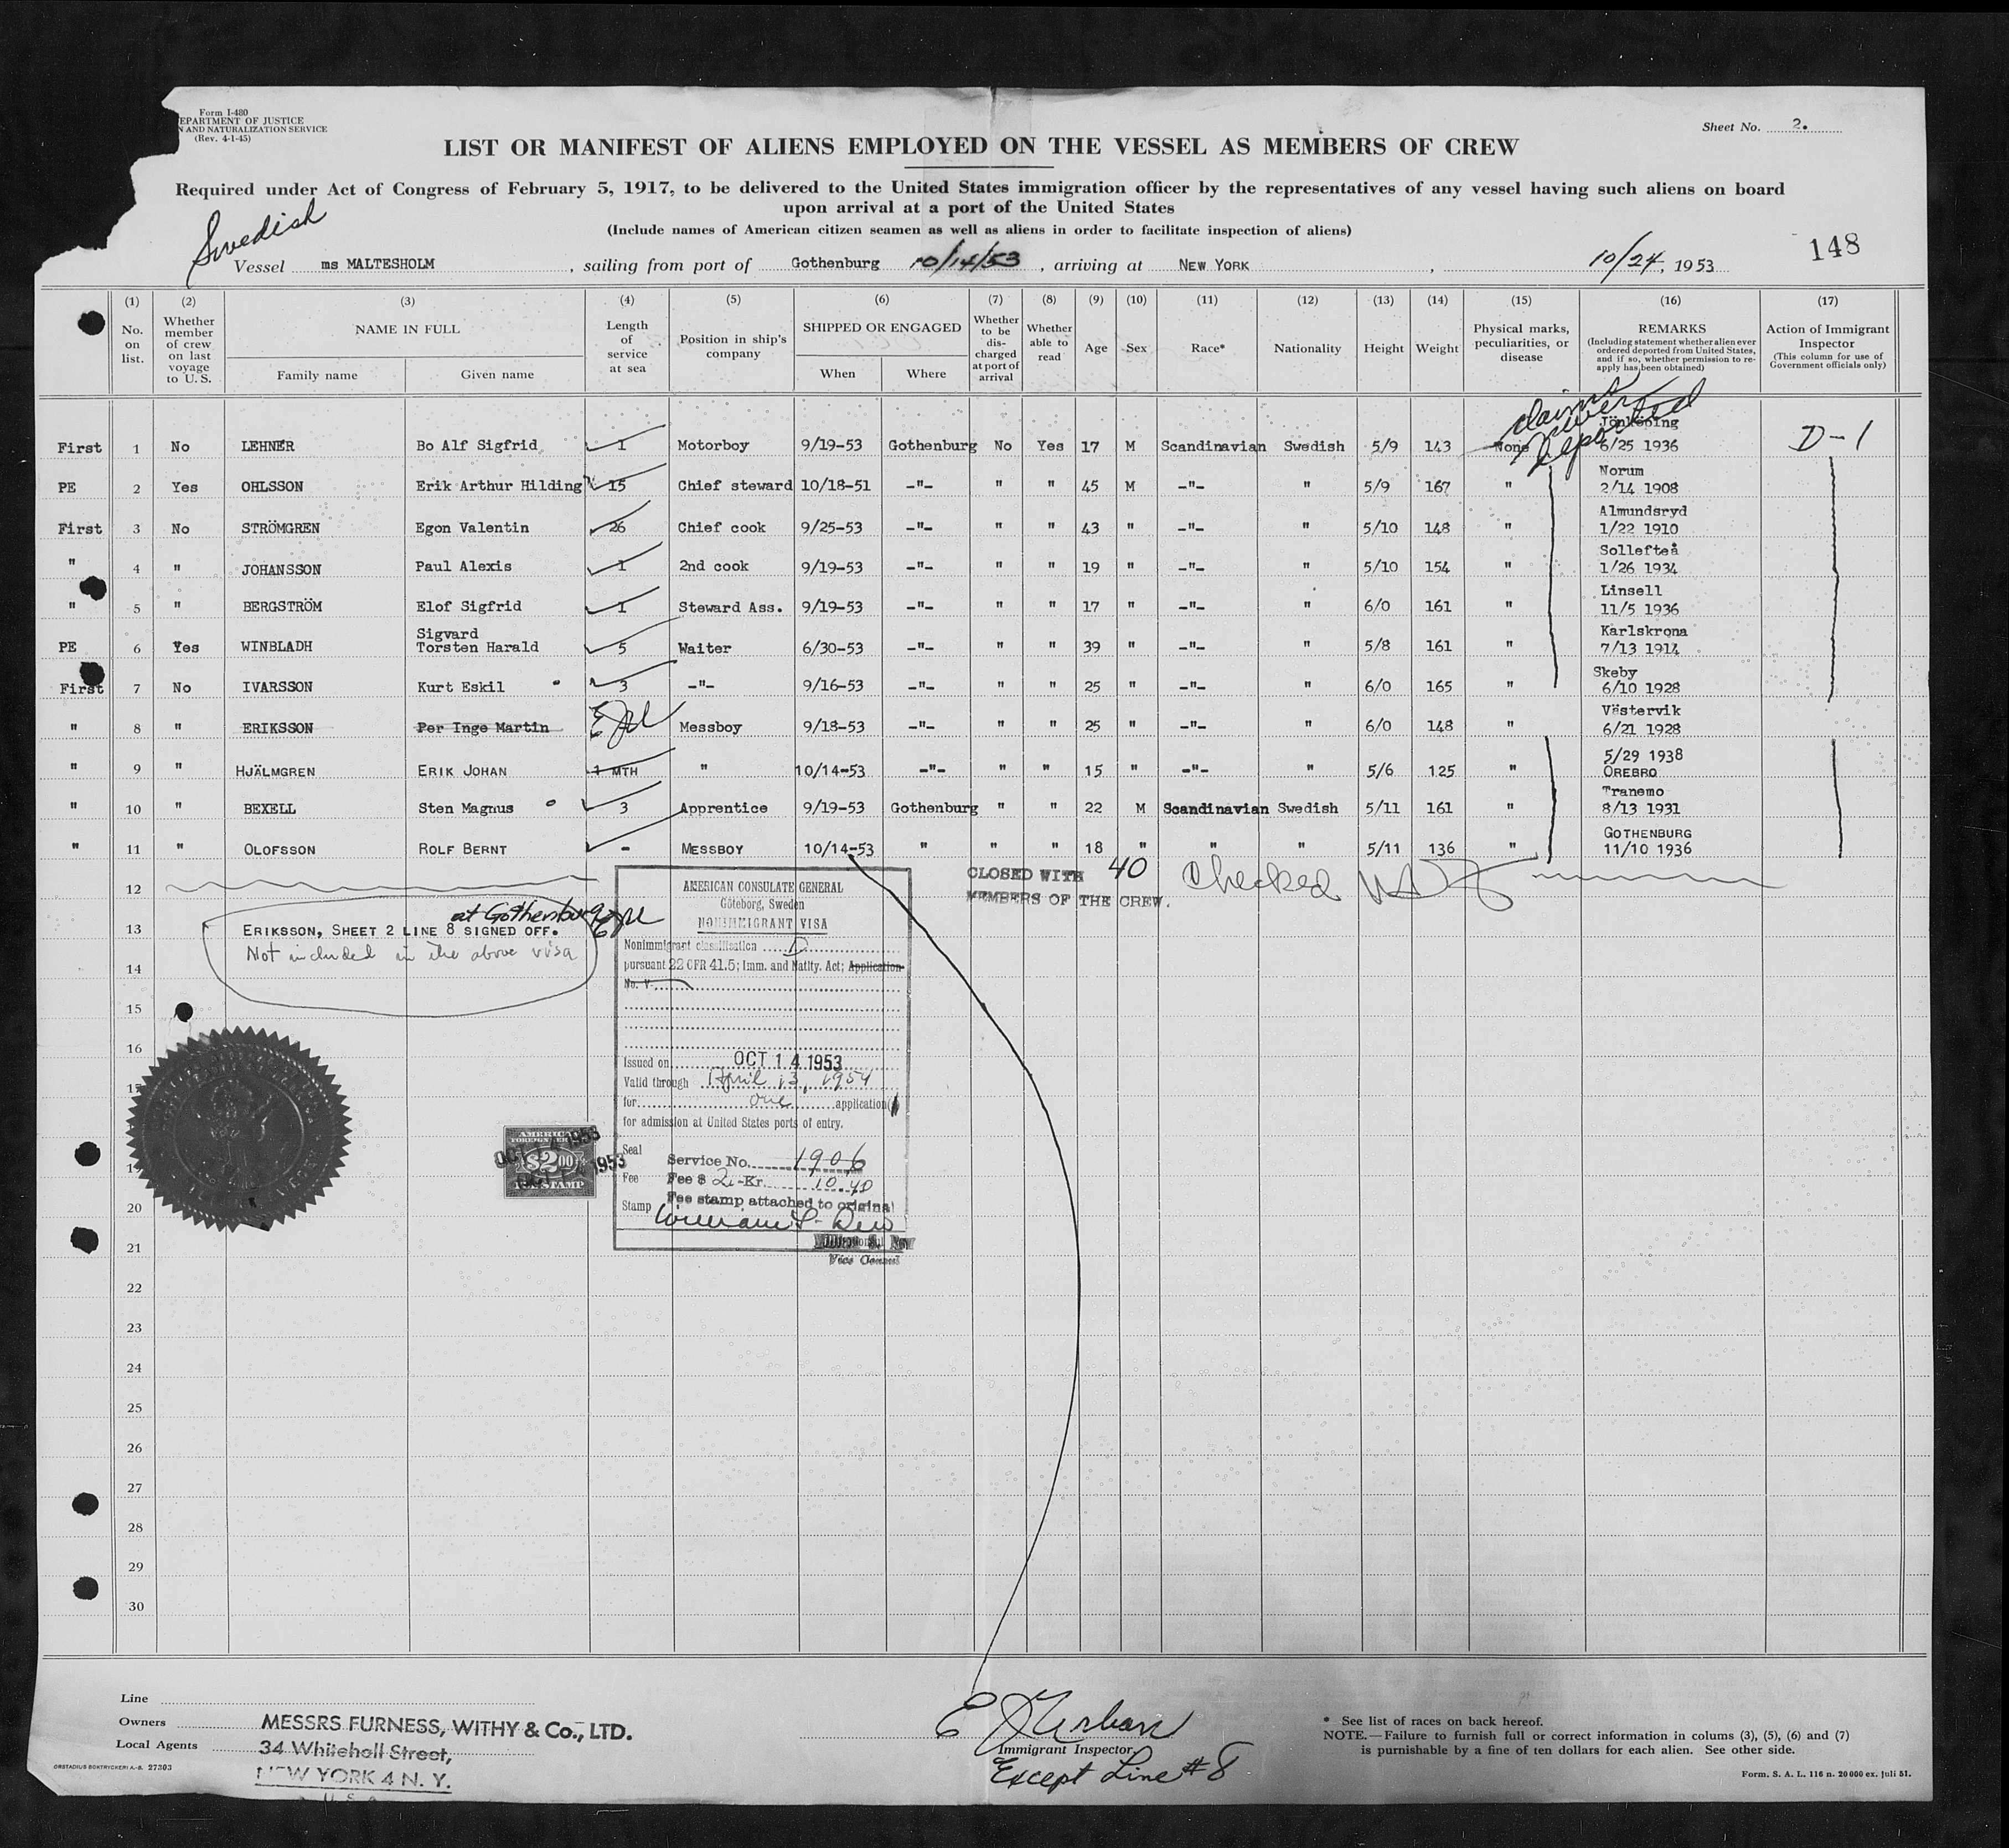 Form I-480
EPARTMENT OF JUSTICE
N AND NATURALIZATION SERVICE
(Rev. 4-1-45)
Sheet No. 2.
LIST OR MANIFEST OF ALIENS EMPLOYED ON THE VESSEL AS MEMBERS OF CREW
Required under Act of Congress of February 5, 1917, to be delivered to the United States immigration officer by the representatives of any vessel having such aliens on board
upon arrival at a port of the United States
(Include names of American citizen seamen as well as aliens in order to facilitate inspection of aliens)
Swedish
148
Vessel ms MALTESHOLM, sailing from port of Gothenburg 10/14/53, arriving at NEW YORK, 10/24, 1953
(1) No. on list. (2) Whether member of crew on last voyage to U.S. (3) NAME IN FULL Family name Given name (4) Length of service at sea (5) Position in ship's company (6) SHIPPED OR ENGAGED When Where (7) Whether to be discharged at port of arrival (8) Whether able to read (9) Age (10) Sex (11) Race* (12) Nationality (13) Height (14) Weight (15) Physical marks, peculiarities, or disease (16) REMARKS (Including statement whether alien ever ordered deported from United States, and if so, whether permission to re-apply has been obtained) (17) Action of Immigrant Inspector (This column for use of Government officials only)
claims never deported
Jönköping
First 1 No LEHNER Bo Alf Sigfrid 1 Motorboy 9/19-53 Gothenburg No Yes 17 M Scandinavian Swedish 5/9 143 None 6/25 1936 D-1
Norum
PE 2 Yes OHLSSON Erik Arthur Hilding 15 Chief steward 10/18-51 -"- " " 45 M -"- " 5/9 167 " 2/14 1908
Almundsryd
First 3 No STRÖMGREN Egon Valentin 26 Chief cook 9/25-53 -"- " " 43 " -"- " 5/10 148 " 1/22 1910
Sollefteå
" 4 " JOHANSSON Paul Alexis 1 2nd cook 9/19-53 -"- " " 19 " -"- " 5/10 154 " 1/26 1934
Linsell
" 5 " BERGSTRÖM Elof Sigfrid 1 Steward Ass. 9/19-53 -"- " " 17 " -"- " 6/0 161 " 11/5 1936
Sigvard Karlskrona
PE 6 Yes WINBLADH Torsten Harald 5 Waiter 6/30-53 -"- " " 39 " -"- " 5/8 161 " 7/13 1914
Skeby
First 7 No IVARSSON Kurt Eskil 3 -"- 9/16-53 -"- " " 25 " -"- " 6/0 165 " 6/10 1928
Västervik
" 8 " ERIKSSON Per Inge Martin Messboy 9/18-53 -"- " " 25 " -"- " 6/0 148 " 6/21 1928
5/29 1938
" 9 " HJÄLMGREN ERIK JOHAN 1 MTH " 10/14-53 -"- " " 15 " -"- " 5/6 125 " ÖREBRO
Tranemo
" 10 " BEXELL Sten Magnus 3 Apprentice 9/19-53 Gothenburg " " 22 M Scandinavian Swedish 5/11 161 " 8/13 1931
GOTHENBURG
" 11 " OLOFSSON ROLF BERNT - MESSBOY 10/14-53 " " " 18 " " " 5/11 136 " 11/10 1936
CLOSED WITH 40
MEMBERS OF THE CREW.
Checked
12
at Gothenburg
13 ERIKSSON, SHEET 2 LINE 8 SIGNED OFF.
Not included in the above visa
14
15
16
17
19
20
21
22
23
24
25
26
27
28
29
30
AMERICAN CONSULATE GENERAL
Göteborg, Sweden
NONIMMIGRANT VISA
Nonimmigrant classification D
pursuant 22 CFR 41.5; Imm. and Natlty. Act; Application
No. V-
Issued on OCT 14 1953
Valid through April 13, 1954
for one application
for admission at United States ports of entry.
Seal Service No. 1906
Fee Fee $ 2.-Kr. 10.40
Stamp Fee stamp attached to original
Vice Consul
AMERICAN
FOREIGN SERVICE
$2.00
FEE STAMP
OCT 14 1953
OCT 14 1953
Line
Owners MESSRS FURNESS, WITHY & Co., LTD.
Local Agents 34 Whitehall Street,
NEW YORK 4 N. Y.
U S A
ORSTADIUS BOKTRYCKERI A.-B. 27303
Immigrant Inspector
Except Line #8
* See list of races on back hereof.
NOTE.—Failure to furnish full or correct information in colums (3), (5), (6) and (7)
is punishable by a fine of ten dollars for each alien. See other side.
Form. S. A. L. 116 n. 20000 ex. juli 51.